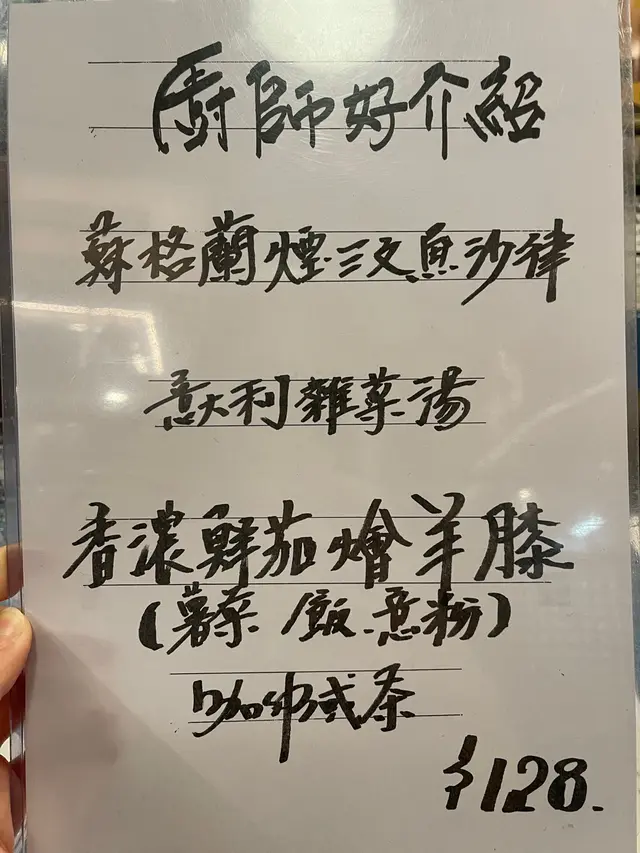 廚師好介紹
蘇格蘭煙三文魚沙律
意大利雜菜湯
香濃鮮茄燴羊膝
(薯菜 飯.意粉)
咖啡或茶
$128.